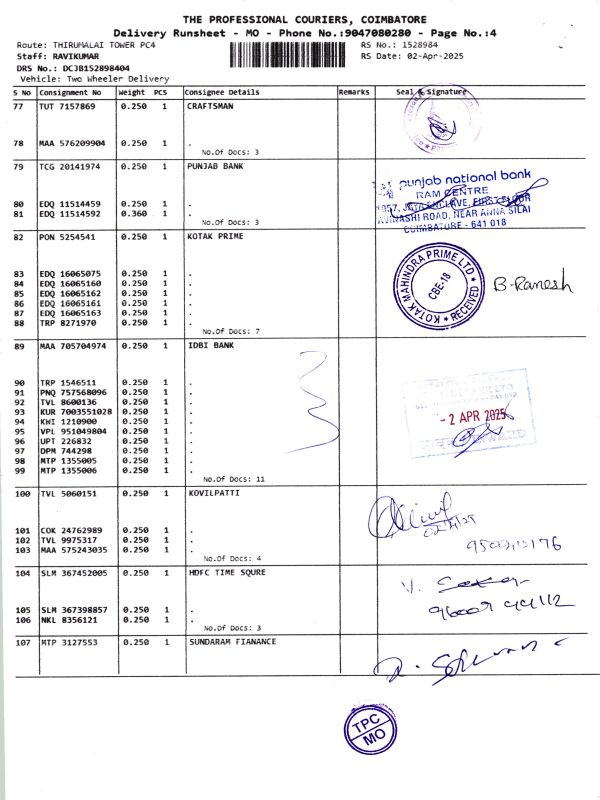 THE PROFESSIONAL COURIERS, COIMBATORE
Delivery Runsheet - MO - Phone No.:9047080280 - Page No.:4
Route: THIRUMALAI TOWER PC4 RS No.: 1528984
Staff: RAVIKUMAR RS Date: 02-Apr-2025
DRS No.: DCJB152898404
Vehicle: Two Wheeler Delivery
S No Consignment No Weight PCS Consignee Details Remarks Seal & Signature
77 TUT 7157869 0.250 1 CRAFTSMAN
78 MAA 576209904 0.250 1 .
No.Of Docs: 3
79 TCG 20141974 0.250 1 PUNJAB BANK
punjab national bank
RAM CENTRE
80 EDQ 11514459 0.250 1 .
81 EDQ 11514592 0.360 1 .
AVINASHI ROAD, NEAR ANNA SILAI
No.Of Docs: 3
COIMBATORE - 641 018
82 PON 5254541 0.250 1 KOTAK PRIME
KOTAK MAHINDRA PRIME LTD
CBE-18
RECEIVED
B. Ramesh
83 EDQ 16065075 0.250 1 .
84 EDQ 16065160 0.250 1 .
85 EDQ 16065162 0.250 1 .
86 EDQ 16065161 0.250 1 .
87 EDQ 16065163 0.250 1 .
88 TRP 8271970 0.250 1 .
No.Of Docs: 7
89 MAA 705704974 0.250 1 IDBI BANK
90 TRP 1546511 0.250 1 .
91 PNQ 757568096 0.250 1 .
92 TVL 8600136 0.250 1 .
93 KUR 7003551028 0.250 1 .
- 2 APR 2025
94 KHI 1210900 0.250 1 .
95 VPL 951049804 0.250 1 .
96 UPT 226832 0.250 1 .
97 DPM 744298 0.250 1 .
98 MTP 1355005 0.250 1 .
99 MTP 1355006 0.250 1 .
No.Of Docs: 11
100 TVL 5060151 0.250 1 KOVILPATTI
101 COK 24762989 0.250 1 .
102 TVL 9975317 0.250 1 .
103 MAA 575243035 0.250 1 .
No.Of Docs: 4
104 SLM 367452005 0.250 1 HDFC TIME SQURE
105 SLM 367398857 0.250 1 .
106 NKL 8356121 0.250 1 .
No.Of Docs: 3
107 MTP 3127553 0.250 1 SUNDARAM FIANANCE
TPC
MO